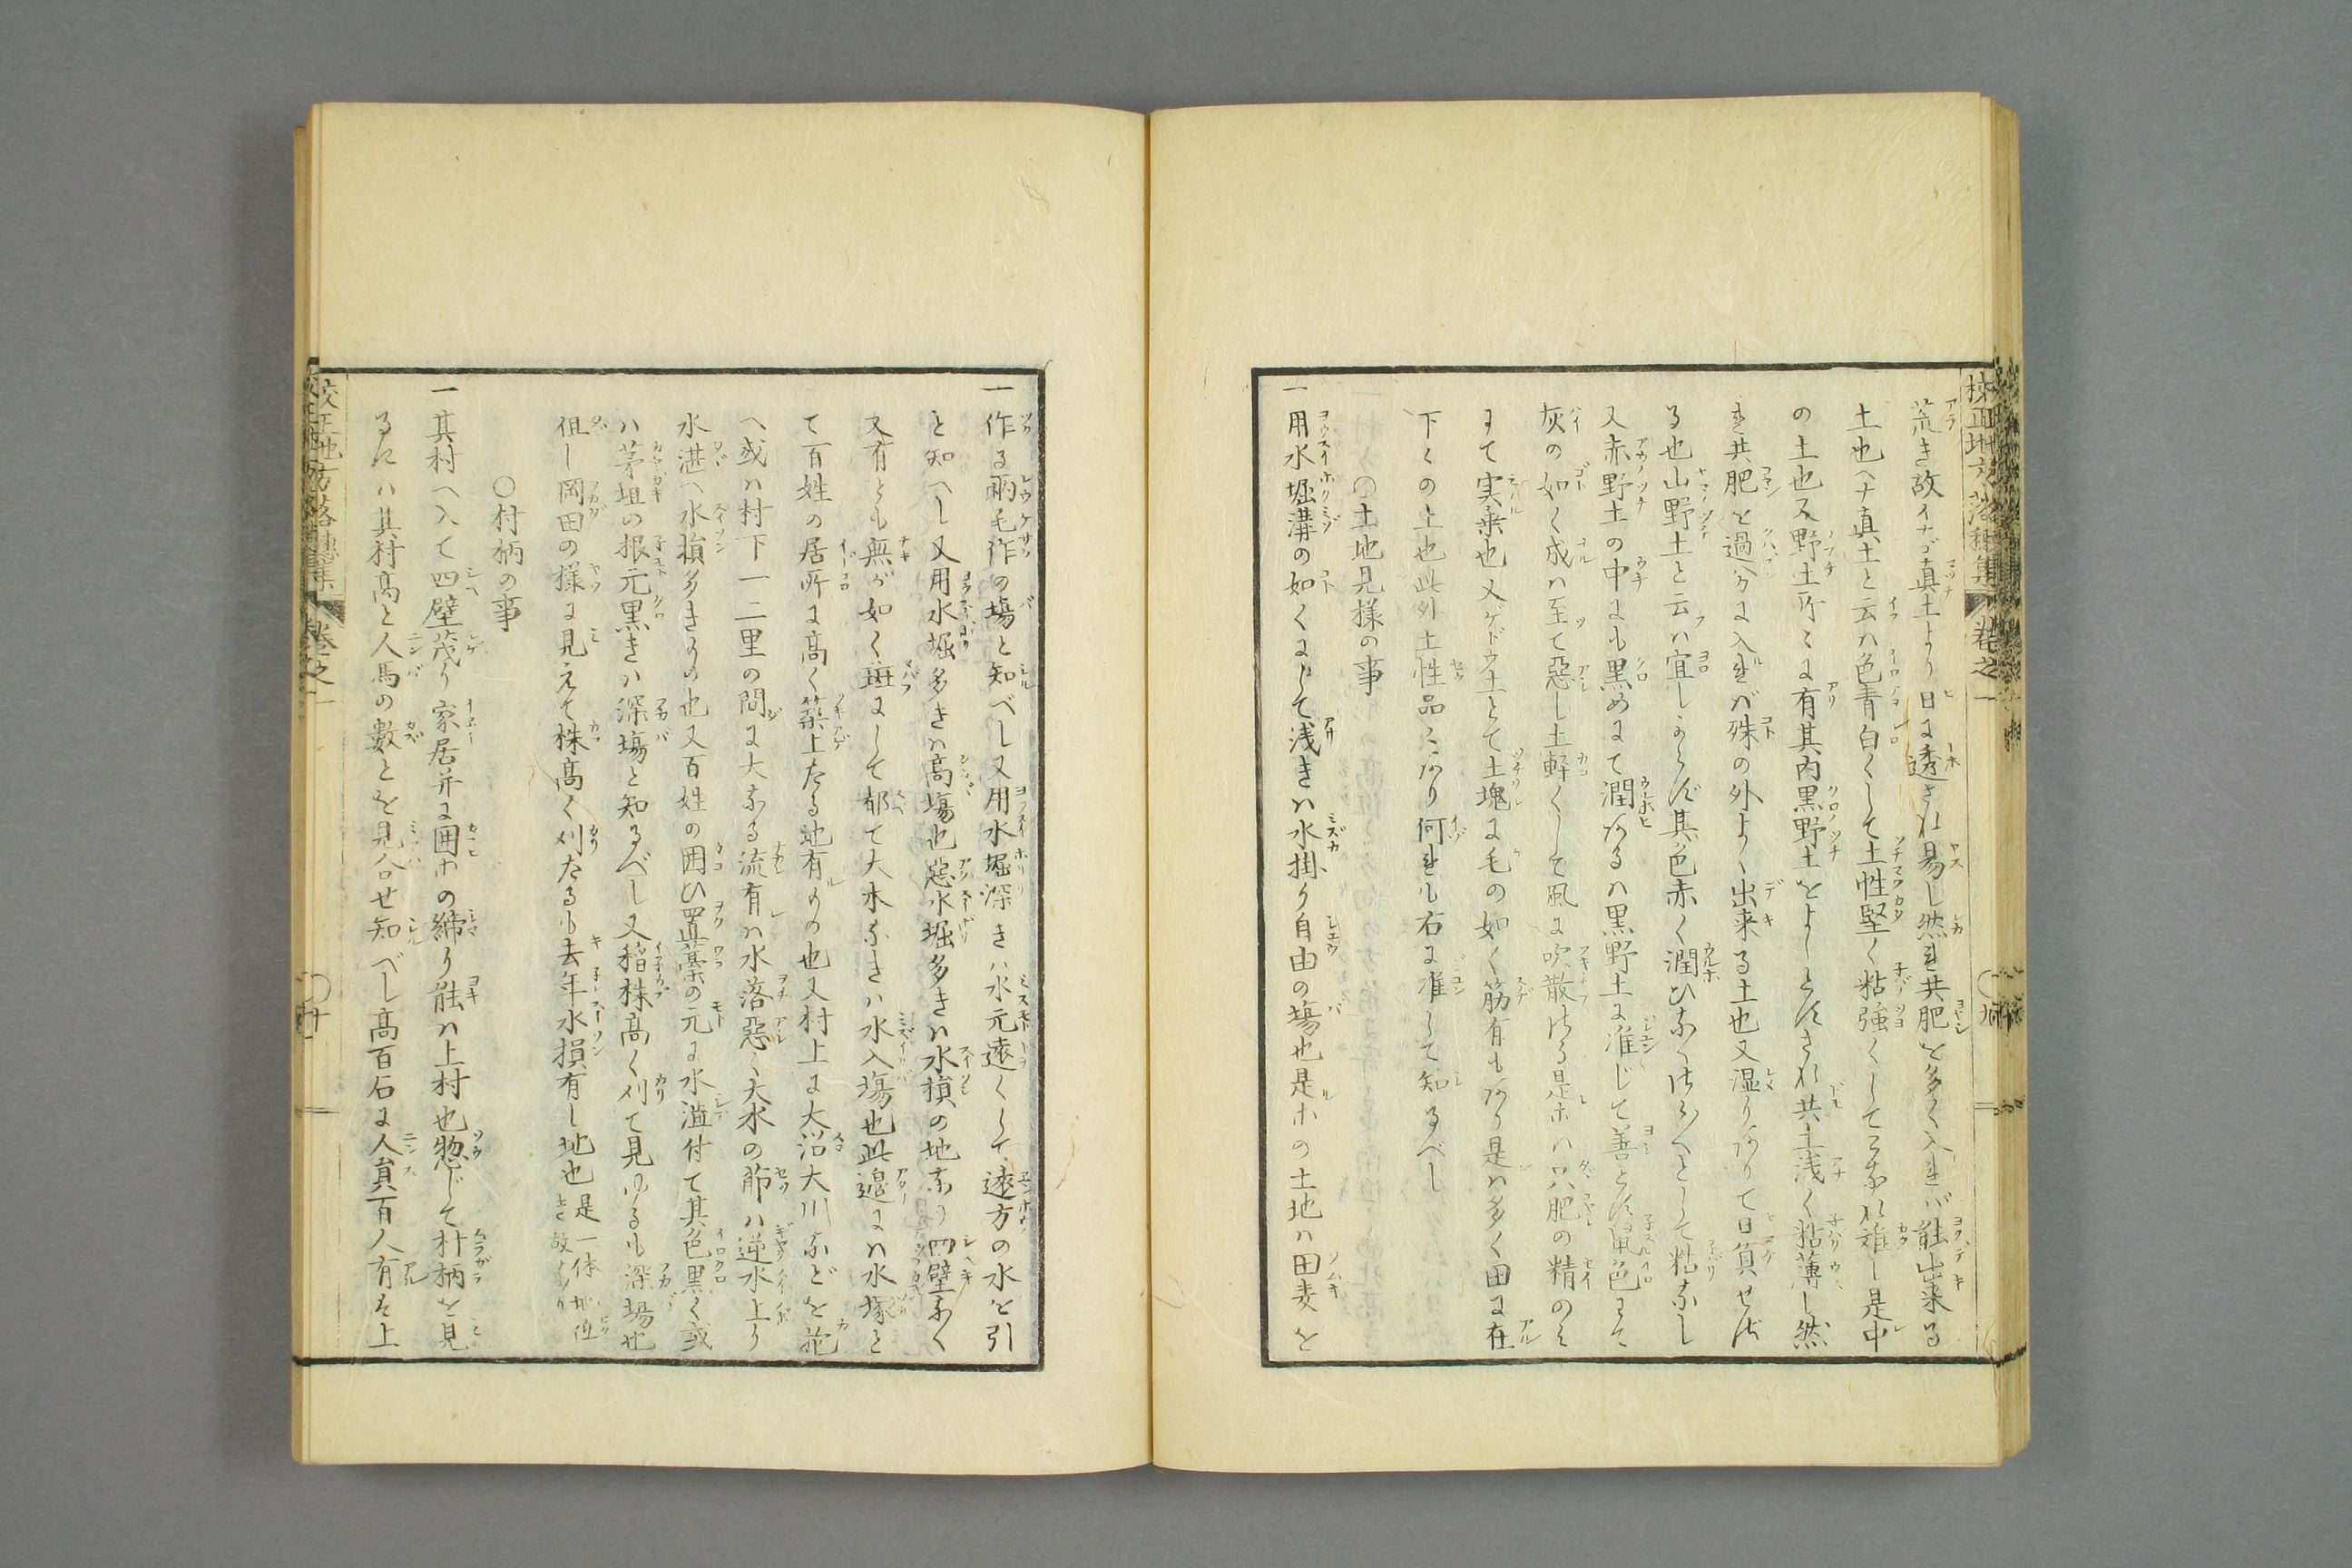 校正地方落穂集 卷之一
荒き故イナゴ真土より日に透され易し然れ共肥を多く入れバ能出来る
土也ヘナ真土と云ハ色青白くして土性堅く粘強くしてこなれ難し是中
の土也又野土所々に有其内黒野土をよしとすされ共土浅く粘薄し然
れ共肥を過分に入れバ殊の外よく出来る土也又湿りありて日負せず
る也山野土と云ハ宜しからず其色赤く潤ひなくはらへとして粘なし
又赤野土の中にも黒めにて潤あるハ黒野土に准じて善とす鼠色にて
灰の如く成ハ至て悪し土軽くして風に吹散ける是ホハ只肥の精のミ
にて実乗也又ゲドウ土とて土塊に毛の如く筋有もあり是ハ多く田に在
下くの土也此外土性品々あり何れも右に准して知るべし
〇土地見様の事
一用水堀溝の如くにして浅きハ水掛り自由の場也是ホの土地ハ田麦を
〇十九
一作る両毛作の場と知べし又用水堀深きハ水元遠くして遠方の水を引
と知へし又用水堀多きハ高場也悪水堀多きハ水損の地なり四壁なく
又有とも無が如く斑にして都て大木なきハ水入場也此辺にハ水塚と
て百姓の居所に高く築上たる地有もの也又村上に大沼大川などを拖
へ或ハ村下一二里の間に大なる流有ハ水落悪く大水の節ハ逆水上り
水湛へ水損多きもの也又百姓の囲ひ置藁の元に水溢付て其色黒く或
ハ茅垣の根元黒きハ深場と知るべし又稲株高く刈て見ゆるも深場也
但し岡田の様に見えて株高く刈たるも去年水損有し地也 是一体地位
よき故なり
〇村柄の事
一其村へ入て四壁茂り家居并に囲ホの締り能ハ上村也惣じて村柄を見
るにハ其村高と人馬の数とを見合せ知べし高百石に人員百人有を上
校正地方落穂集 卷之一
〇廿